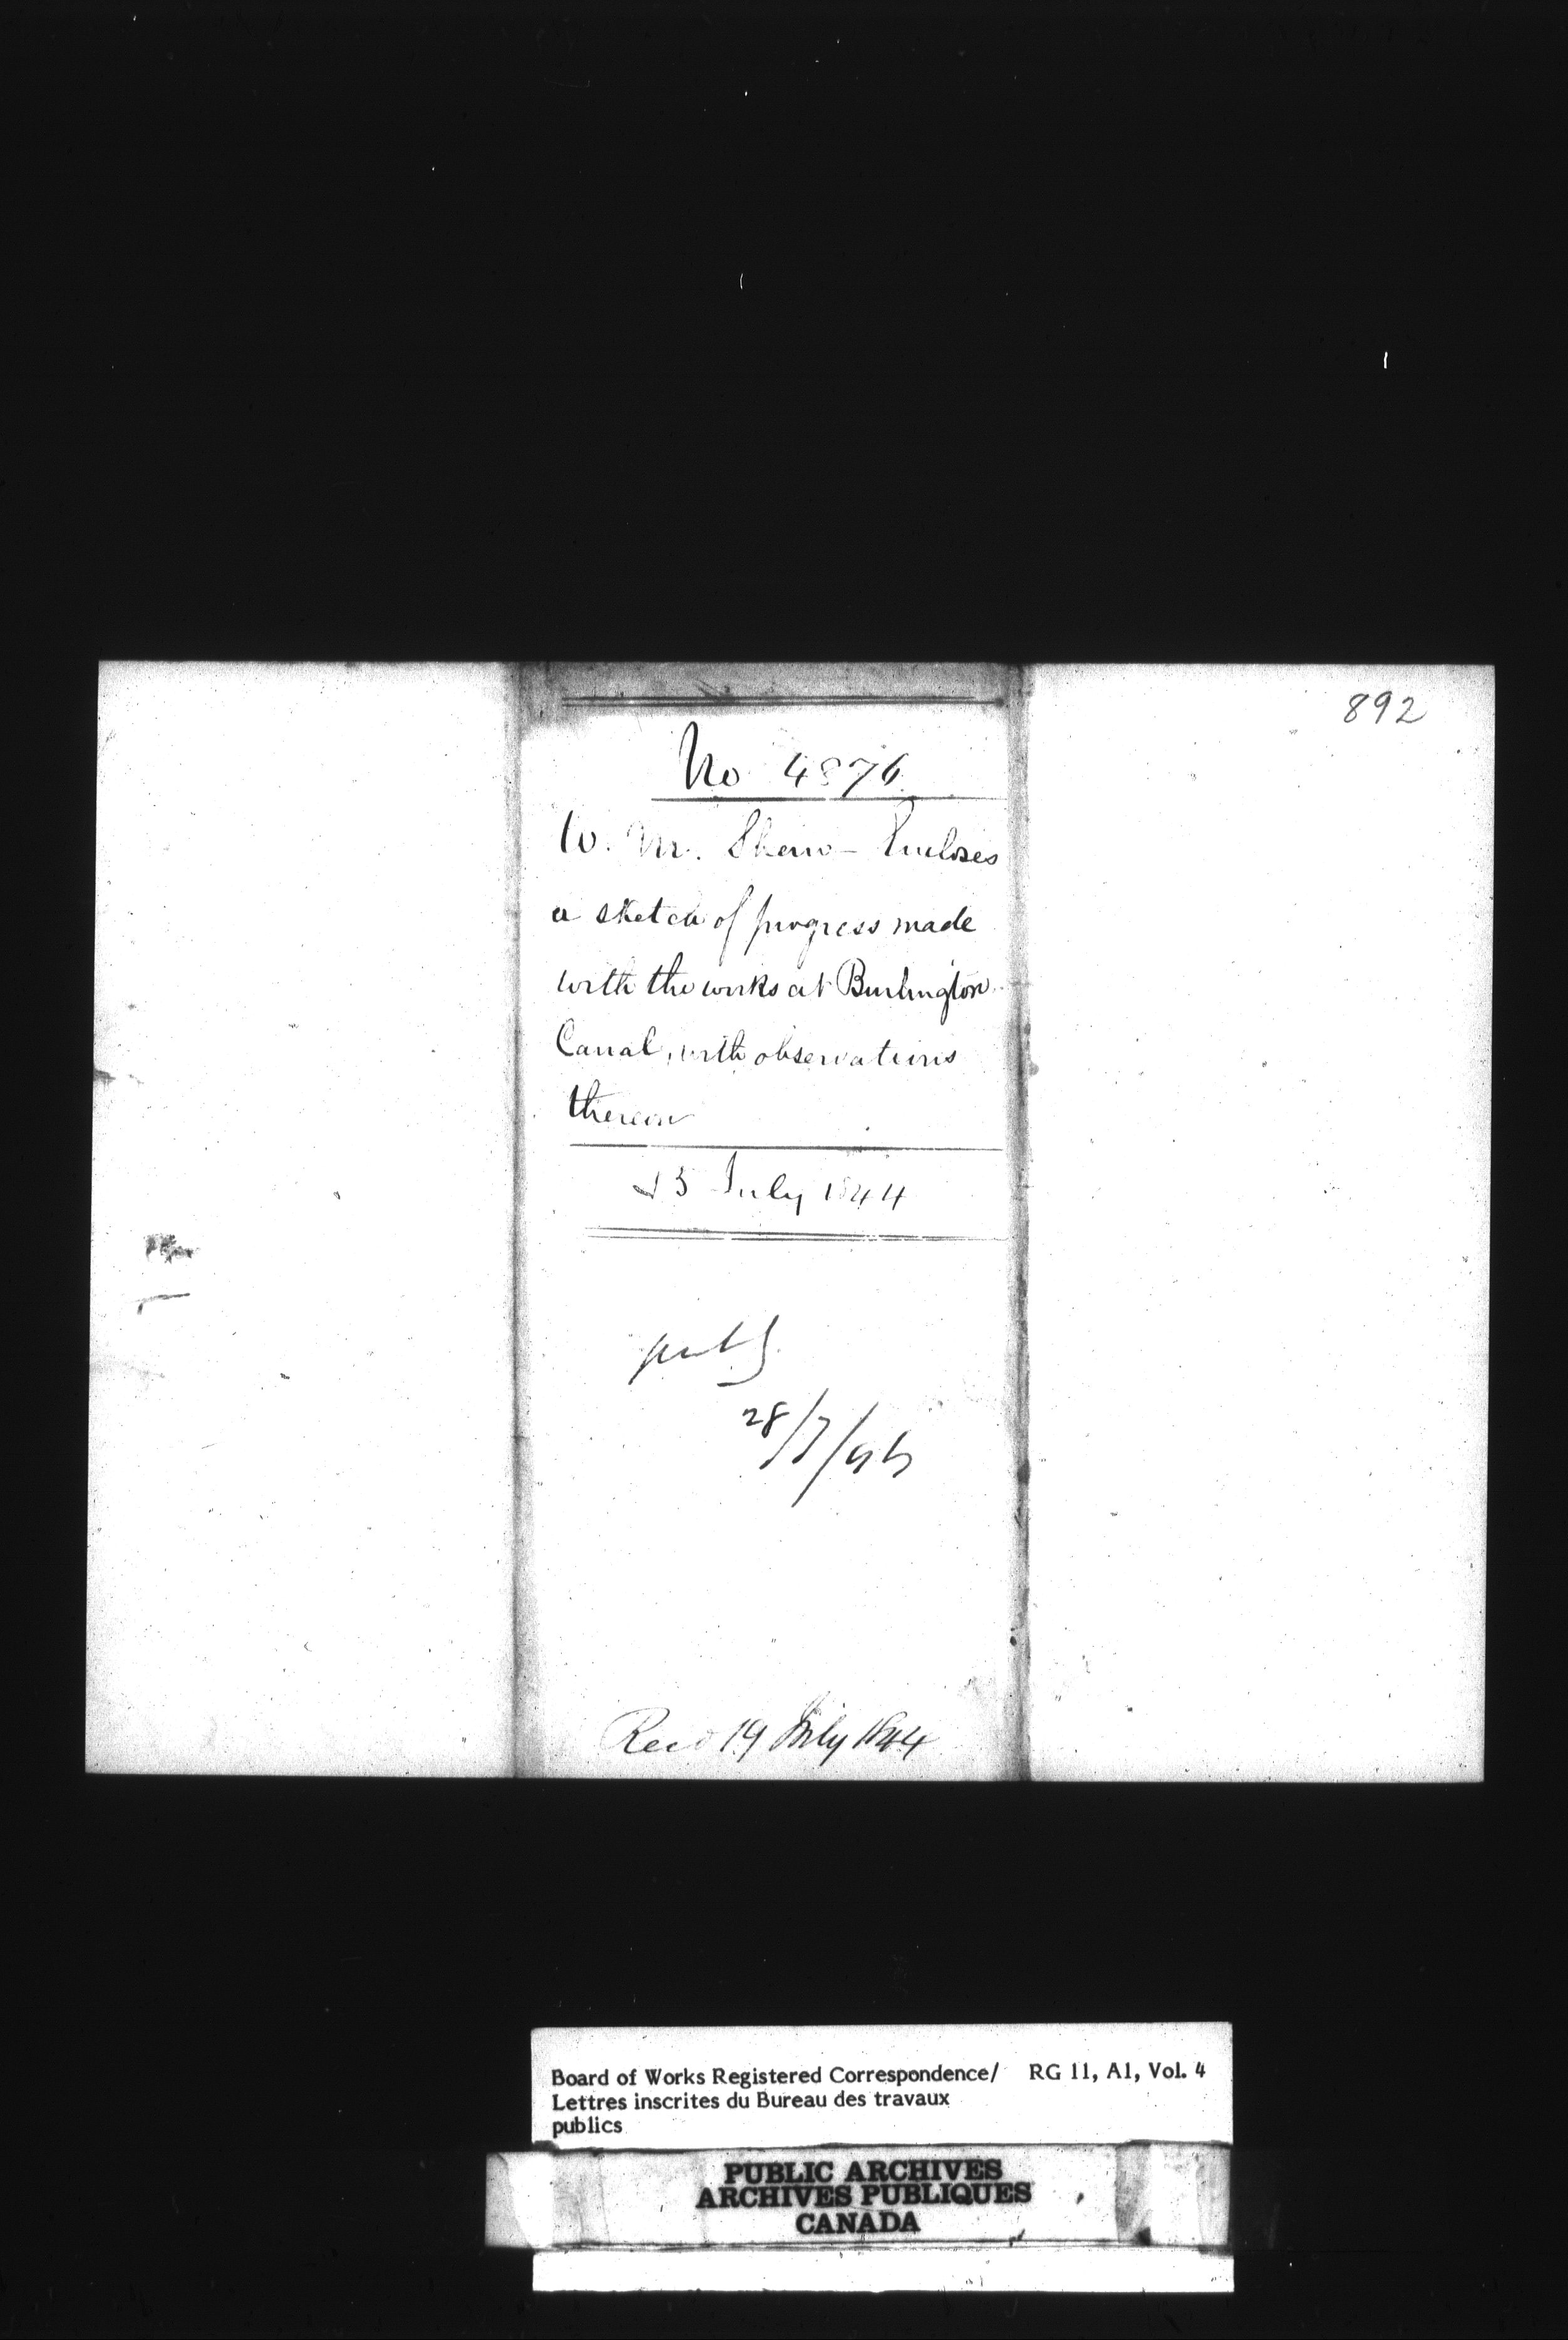 892
No 4876
W. M. Shaw - Encloses
a sketch of progress made
with the works at Burlington
Canal, with observations
thereon
13 July 1844
28/7/
Recd 19 July 1844
Board of Works Registered Correspondence/ RG 11, A1, Vol. 4
Lettres inscrites du Bureau des travaux
publics
PUBLIC ARCHIVES
ARCHIVES PUBLIQUES
CANADA